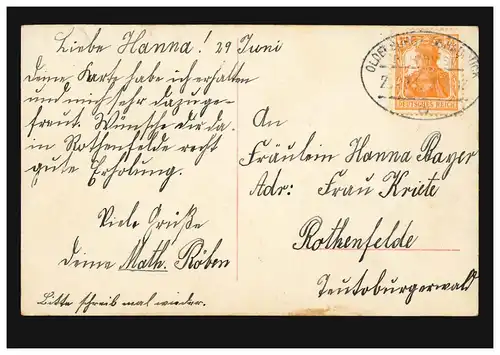 Liebe Hanna! 29 Juni
Deine Karte habe ich erhalten
und mich sehr dazu ge-
freut. Wünsche dir da
in Rothenfelde recht
gute Erholung.
Viele Grüße
deine Math. Röben
Bitte schreib mal wieder.
An
Fräulein Hanna Bayer
Adr: Frau Krüte
Rothenfelde
Teutoburgerwald
DEUTSCHES REICH